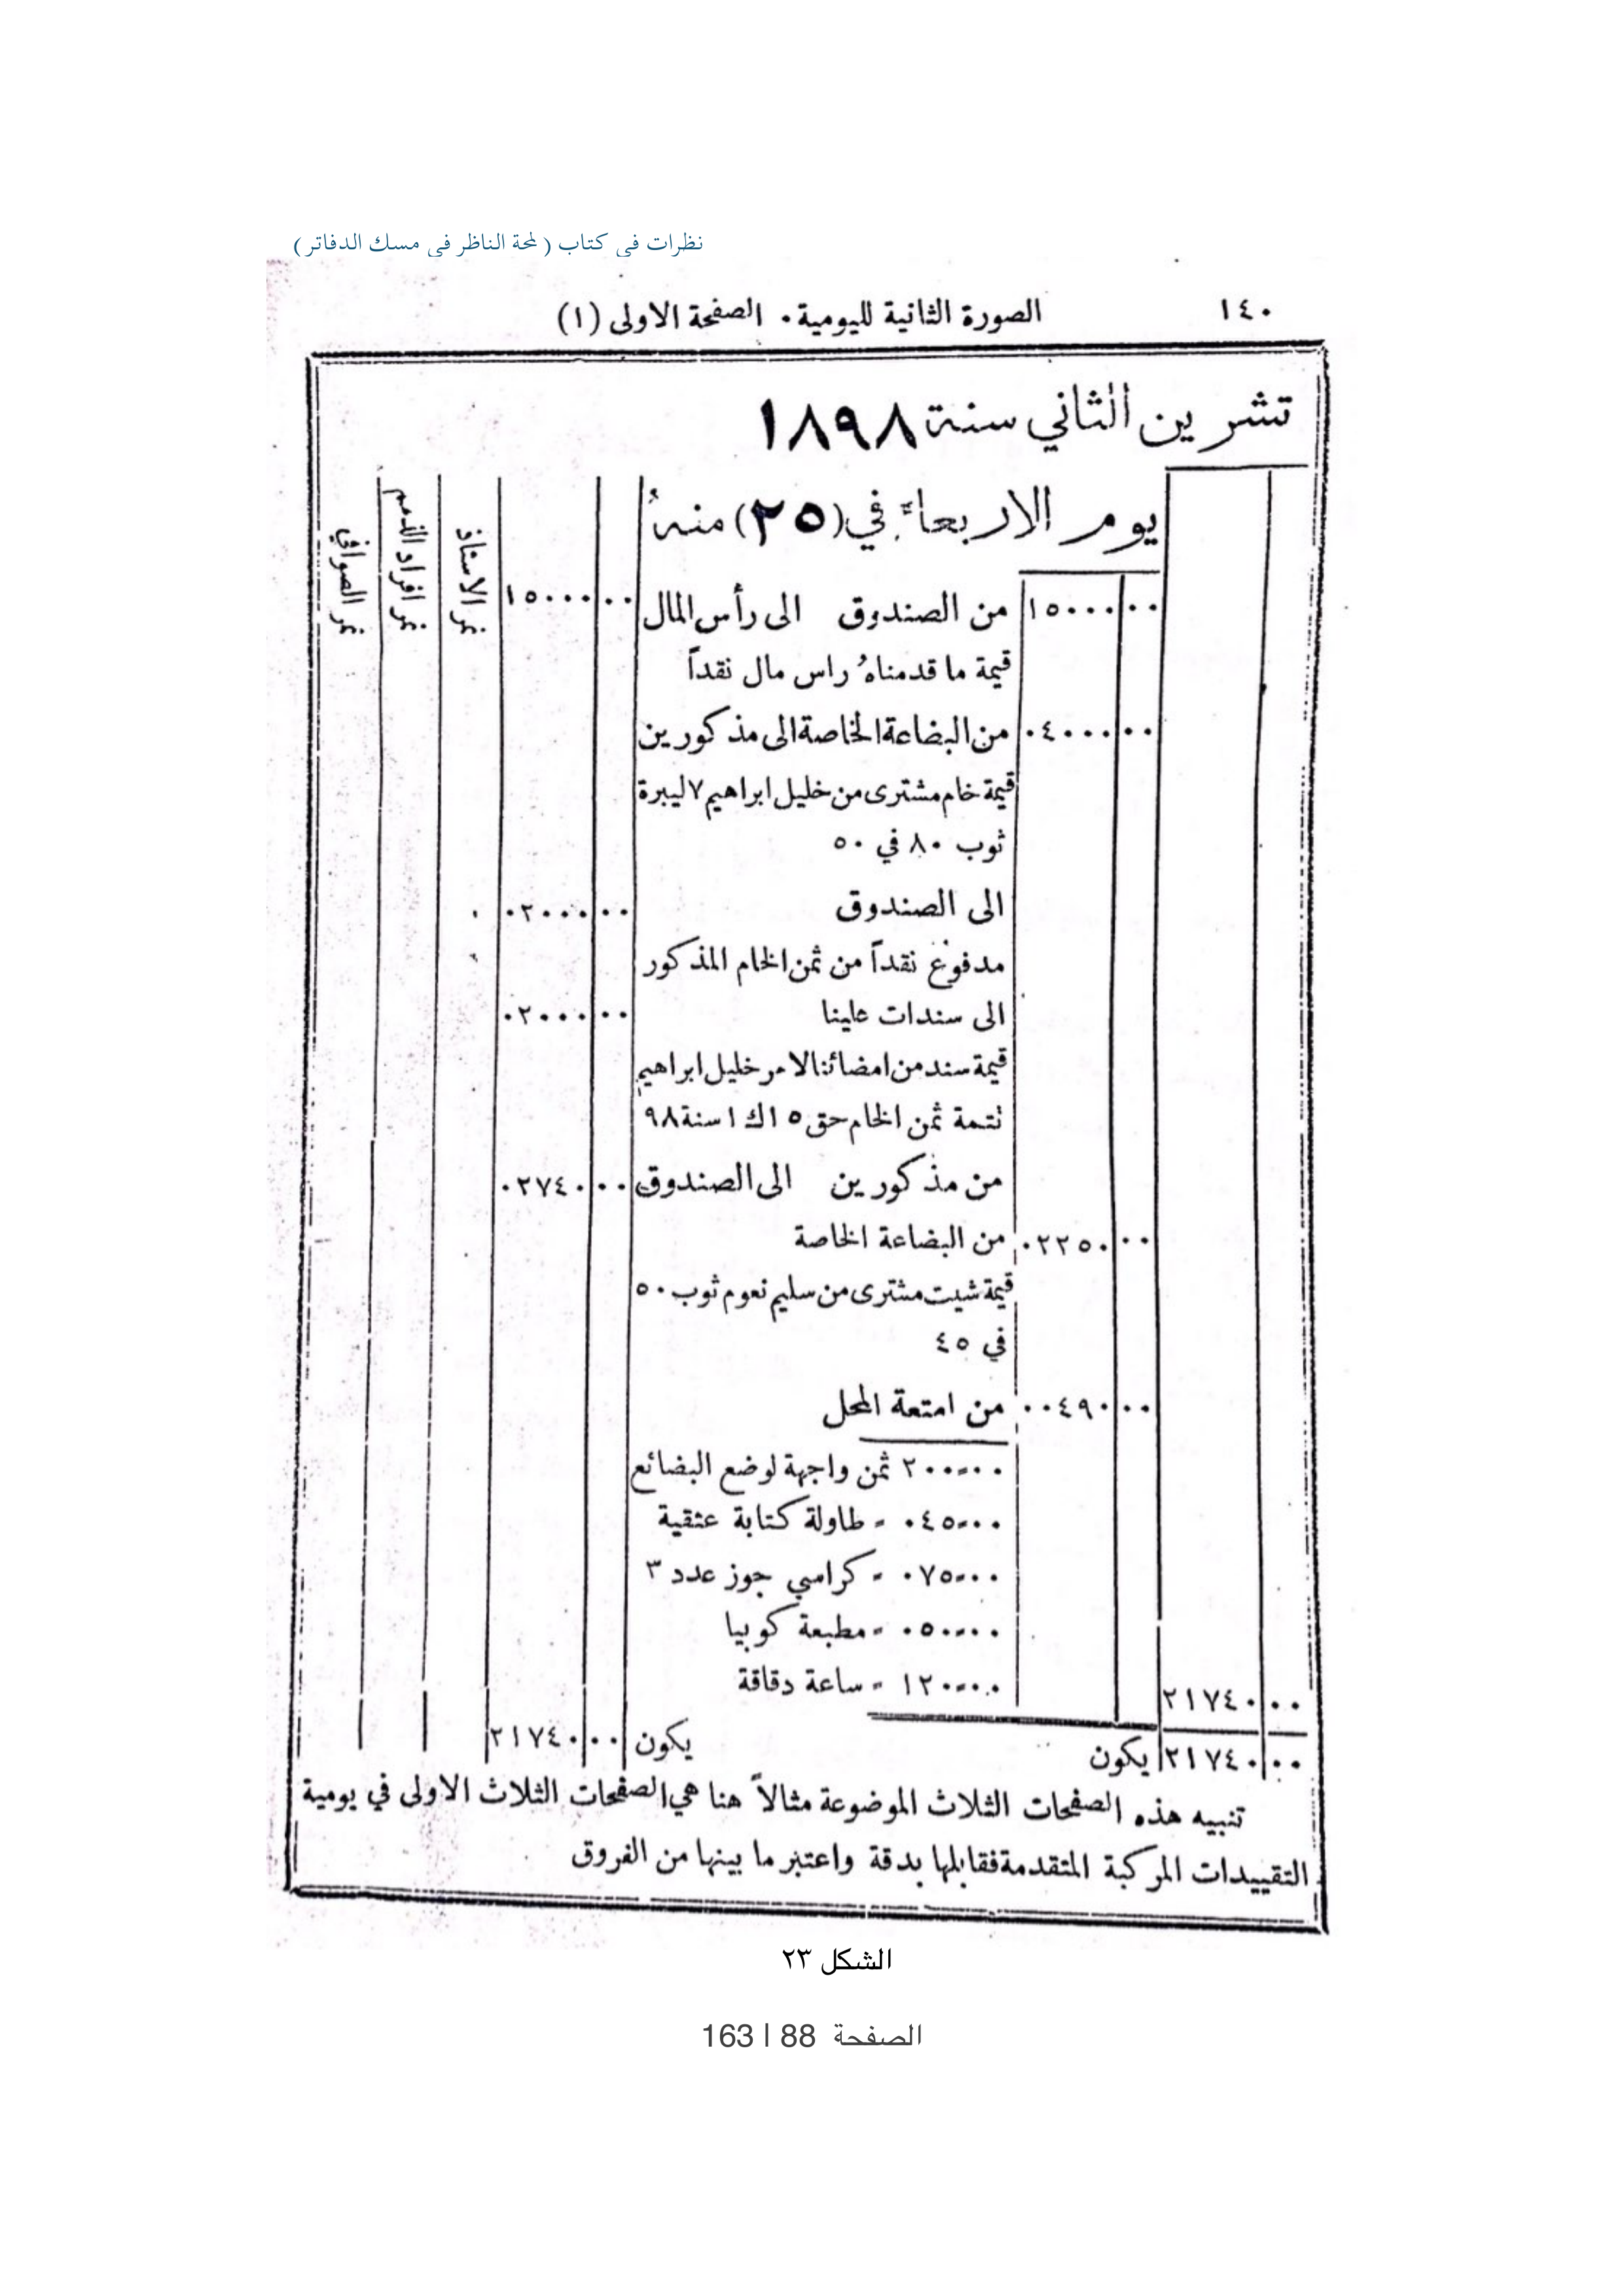 نظرات في كتاب ( لمحة الناظر في مسك الدفاتر )
١٤٠ الصورة الثانية لليومية . الصفحة الاولى (١)
تشرين الثاني سنة ١٨٩٨
يوم الاربعاء في (٢٥) منهُ
نمر الاستاذ
نمر افراد الذمم
نمر الصوافي
١٥٠٠٠ ٠٠ من الصندوق الى رأس المال ١٥٠٠٠ ٠٠
قيمة ما قدمناهُ راس مال نقداً
٠٤٠٠٠ ٠٠ من البضاعة الخاصة الى مذكورين
قيمة خام مشترى من خليل ابراهيم ٧ ليبرة
ثوب ٨٠ في ٥٠
الى الصندوق ٠٢٠٠٠ ٠٠
مدفوع نقداً من ثمن الخام المذكور
الى سندات علينا ٠٢٠٠٠ ٠٠
قيمة سند من امضائنا لامر خليل ابراهيم
تتمة ثمن الخام حق ١٥ ك ١ سنة ٩٨
من مذكورين الى الصندوق ٠٢٧٤٠ ٠٠
٠٢٢٥٠ ٠٠ من البضاعة الخاصة
قيمة شيت مشترى من سليم نعوم ثوب ٥٠
في ٤٥
٠٠٤٩٠ ٠٠ من امتعة المحل
٢٠٠-٠٠ ثمن واجهة لوضع البضائع
٠٤٥-٠٠ = طاولة كتابة عتقية
٠٧٥-٠٠ = كراسي جوز عدد ٣
٠٥٠-٠٠ = مطبعة كوبيا
١٢٠-٠٠ = ساعة دقاقة
٢١٧٤٠ ٠٠
٢١٧٤٠ ٠٠ يكون يكون ٢١٧٤٠ ٠٠
تنبيه هذه الصفحات الثلاث الموضوعة مثالاً هنا هي الصفحات الثلاث الاولى في يومية
التقييدات المركبة المتقدمة فقابلها بدقة واعتبر ما بينها من الفروق
الشكل ٢٣
الصفحة 88 | 163